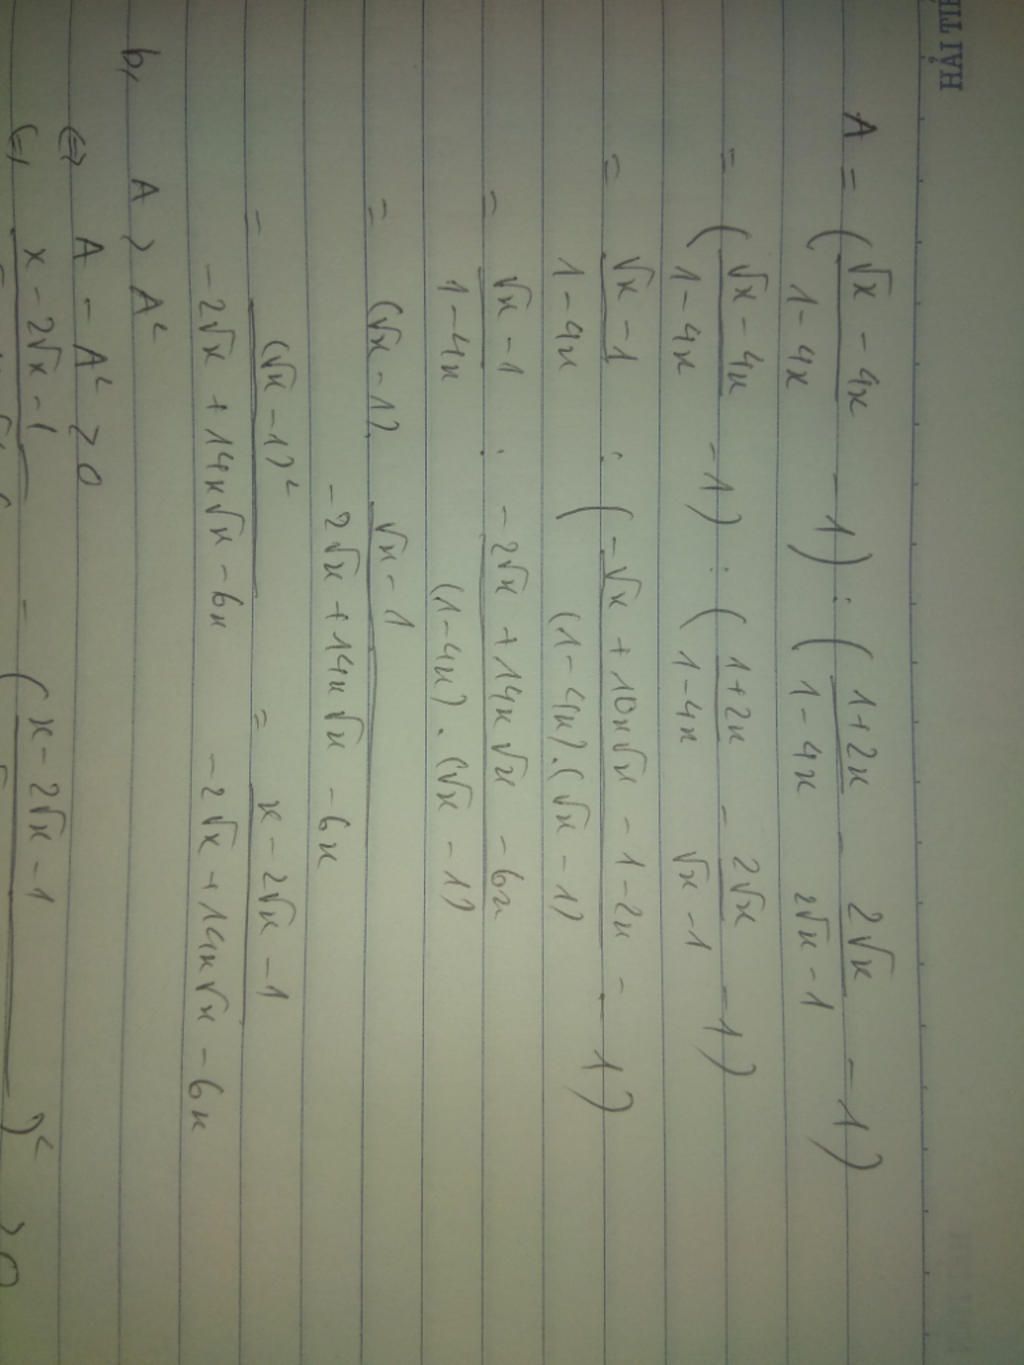 HẢI TI
A = (√x - 4x / 1 - 4x - 1) : (1 + 2x / 1 - 4x - 2√x / 2√x - 1 - 1)
= (√x - 4x / 1 - 4x - 1) : (1 + 2x / 1 - 4x - 2√x / √x - 1 - 1)
= √x - 1 / 1 - 4x : (-√x + 10x√x - 1 - 2x - / (1 - 4x).(√x - 1) 1)
= √x - 1 / 1 - 4x . -2√x + 14x√x - 6x / (1 - 4x).(√x - 1)
= (√x - 1) . √x - 1 / -2√x + 14x√x - 6x
= (√x - 1)² / -2√x + 14x√x - 6x = x - 2√x - 1 / -2√x + 14x√x - 6x
b, A > A²
⇔ A - A² > 0
⇔ x - 2√x - 1 - (x - 2√x - 1)² > 0